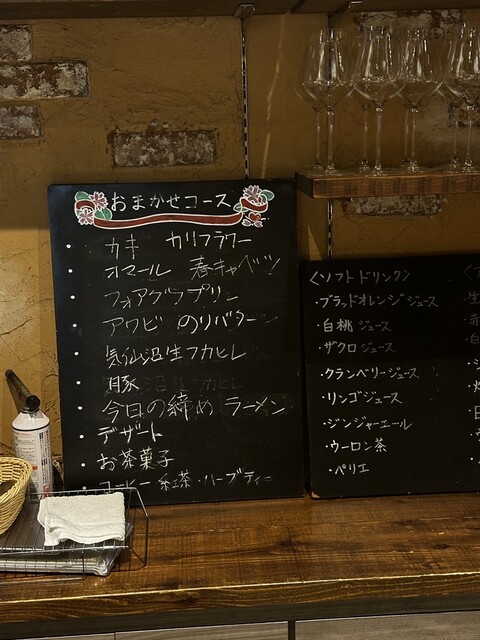 おまかせコース
・カキ カリフラワー
・オマール 春キャベツ
・フォアグラプリン
・アワビ のりバター
・気仙沼生フカヒレ
・豚
・今日の締め ラーメン
・デザート
・お茶菓子
・コーヒー 紅茶・ハーブティー
<ソフトドリンク>
・ブラッドオレンジジュース
・白桃ジュース
・ザクロジュース
・クランベリージュース
・リンゴジュース
・ジンジャーエール
・ウーロン茶
・ペリエ